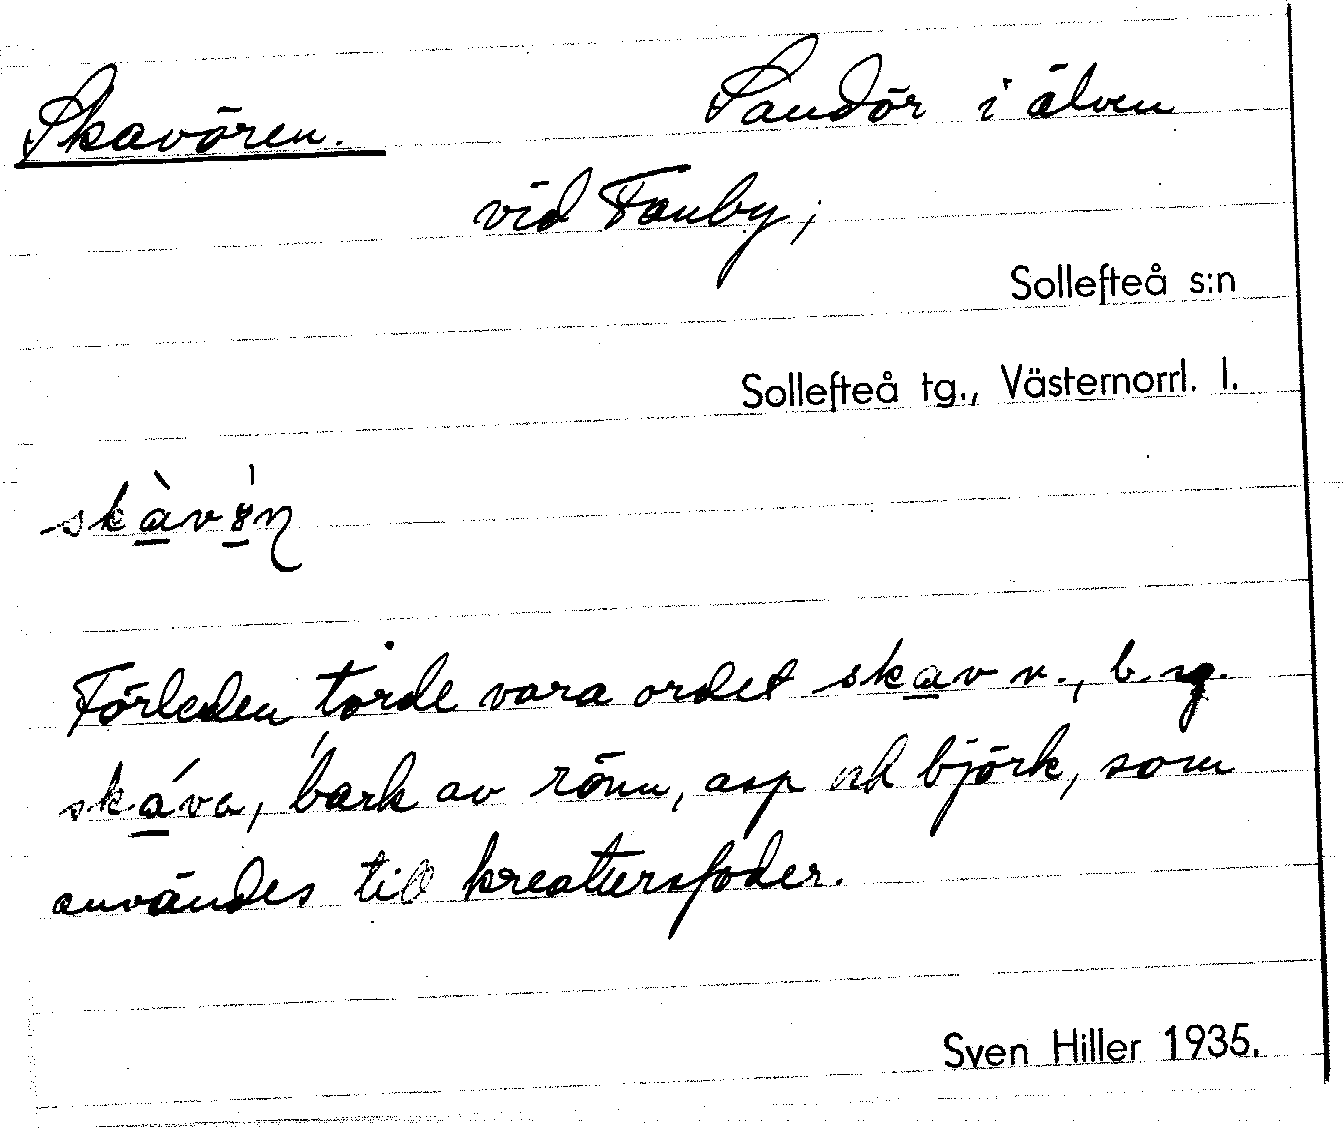 Skavören. Sandör i älven
vid Fanby,
Sollefteå s:n
Sollefteå tg., Västernorrl. l.
Förleden torde vara ordet skav n., b. sg.
skáva, bark av rönn, asp och björk, som
användes till kreatursfoder.
Sven Hiller 1935.